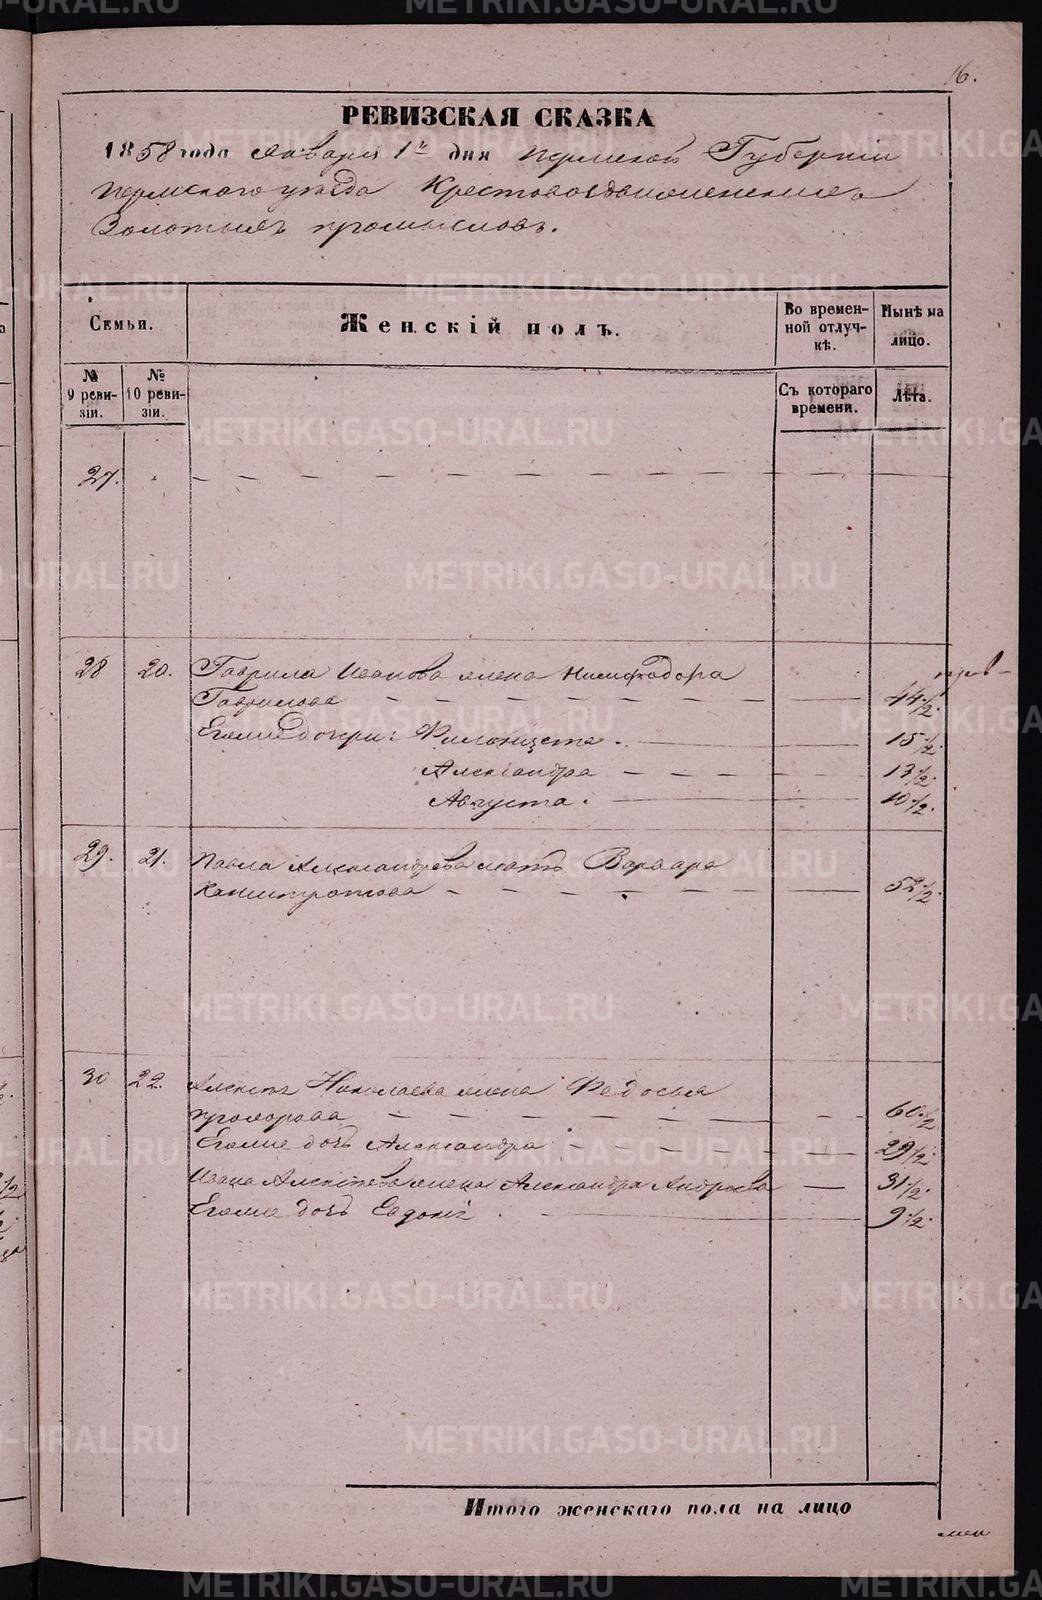 METRIKI.GASO-URAL.RU
16.
РЕВИЗСКАЯ СКАЗКА
1858 года Января 1го дня Пермской Губернии
Пермского уезда Крестовоздвиженских
Золотых промыслов.
Семьи.
Женскій полъ.
Во времен-
ной отлуч-
кѣ.
Нынѣ на
лицо.
№
9 реви-
зіи.
№
10 реви-
зіи.
Съ котораго
времени.
Лѣта.
27.
28 20. Гаврила Иванова жена Нимфодора
Гаврилова 44 1/2.
Его же дочери: Филицата. 15 1/2.
Александра 13 1/2.
Августа. 10 1/2.
29. 21. Павла Александрова мать Варвара
52 1/2.
30 22. Николаева жена Федосья
60 1/2
Его же дочь Александра 29 1/2.
Ивана Алексеева жена Александра Андреева 31 1/2.
Его же дочь 9 1/2.
Итого женскаго пола на лицо